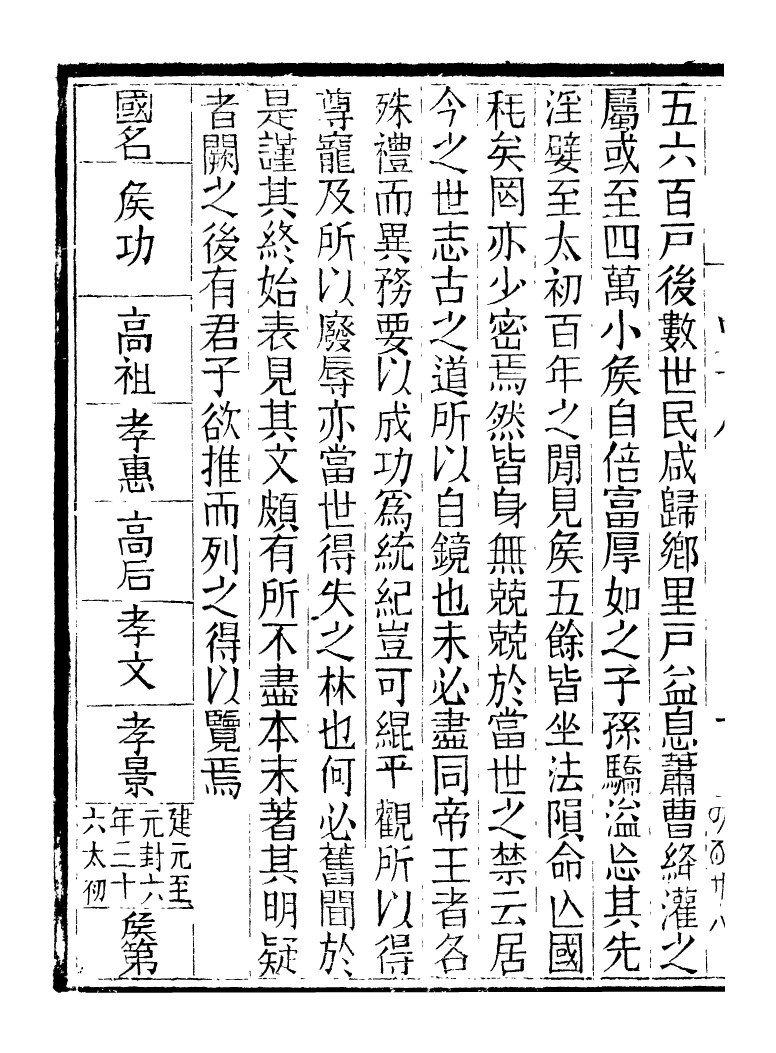 五六百戸後數世民咸歸鄉里戸益息蕭曹絳灌之
屬或至四萬小矦自倍富厚如之子孫驕溢忘其先
淫嬖至太初百年之閒見矦五餘皆坐法隕命亾國
秏矣罔亦少密焉然皆身無兢兢於當世之禁云居
今之世志古之道所以自鏡也未必盡同帝王者各
殊禮而異務要以成功爲統紀豈可緄乎觀所以得
尊寵及所以廢辱亦當世得失之林也何必舊聞於
是謹其終始表見其文頗有所不盡本末著其明疑
者闕之後有君子欲推而列之得以覽焉
國名
矦功
高祖
孝惠
高后
孝文
孝景
建元至
元封六
年三十
六太初
矦第